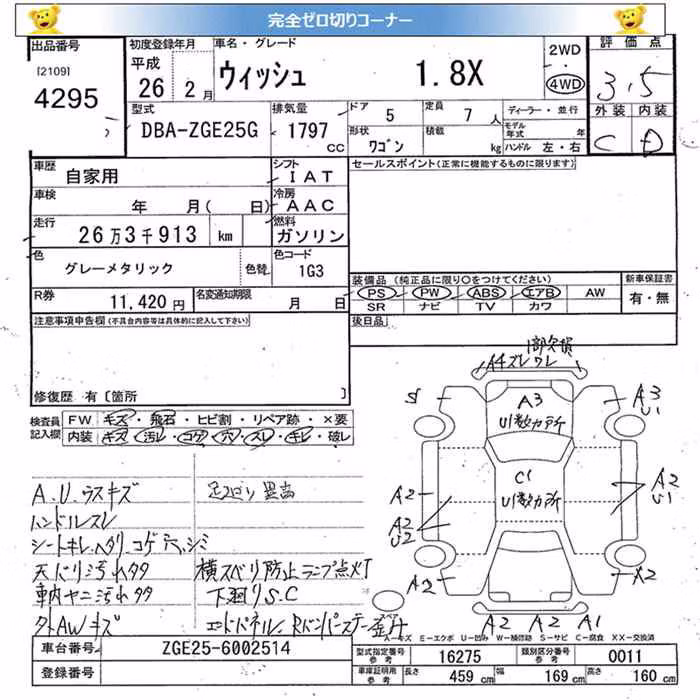 完全ゼロ切りコーナー
出品番号
[2109]
4295
初度登録年月
平成
26年 2月
車名・グレード
ウィッシュ 1.8X
2WD
4WD
評価点
3.5
外装 内装
C D
型式
DBA-ZGE25G
排気量
1797 CC
ドア 5
定員 7人
形状 ワゴン
積載 kg
ディーラー・並行
モデル年式 年
ハンドル 左・右
車歴
自家用
シフト
IAT
セールスポイント(正常に機能するものに限ります)
車検
年 月( 日)
冷房
AAC
走行
26万3千913 km
燃料
ガソリン
色
グレーメタリック
色替
色コード
1G3
装備品(純正品に限り○をつけてください)
新車保証書
PS PW ABS エアB AW
SR ナビ TV カワ
有・無
R券
11,420円
名変通知期限
月 日
後日品
注意事項申告欄(不具合内容等は具体的に記入して下さい)
修復歴 有〔箇所 〕
検査員記入欄
FW キズ・飛石・ヒビ割・リペア跡・×要
内装 キズ・汚レ・コゲ・穴・スレ・キレ・破レ
A.U.ウスキズ
ハンドルスレ
シートキレ.ヘタリ コゲ穴.シミ
天バリ汚れタタ
車内ヤニ汚れタタ
タトAWキズ
足マワリ異音
横スベリ防止ランプ点灯
下廻りS.C
エンドパネル.Rバンパーステー歪ミ
1部欠損
A4ズレワレ
S
A3
U1数カ所
A3
U1
C1
U1数カ所
A2
A2
U2
A2
U1
A2
X2
スペア
A2 A2 A1
A-キズ E-エクボ U-凹み W-補修跡 S-サビ C-腐食 XX-交換済
車台番号
ZGE25-6002514
登録番号
型式指定番号 参考
16275
類別区分番号 参考
0011
車庫証明用 参考
長さ 459 cm
幅 169 cm
高さ 160 cm